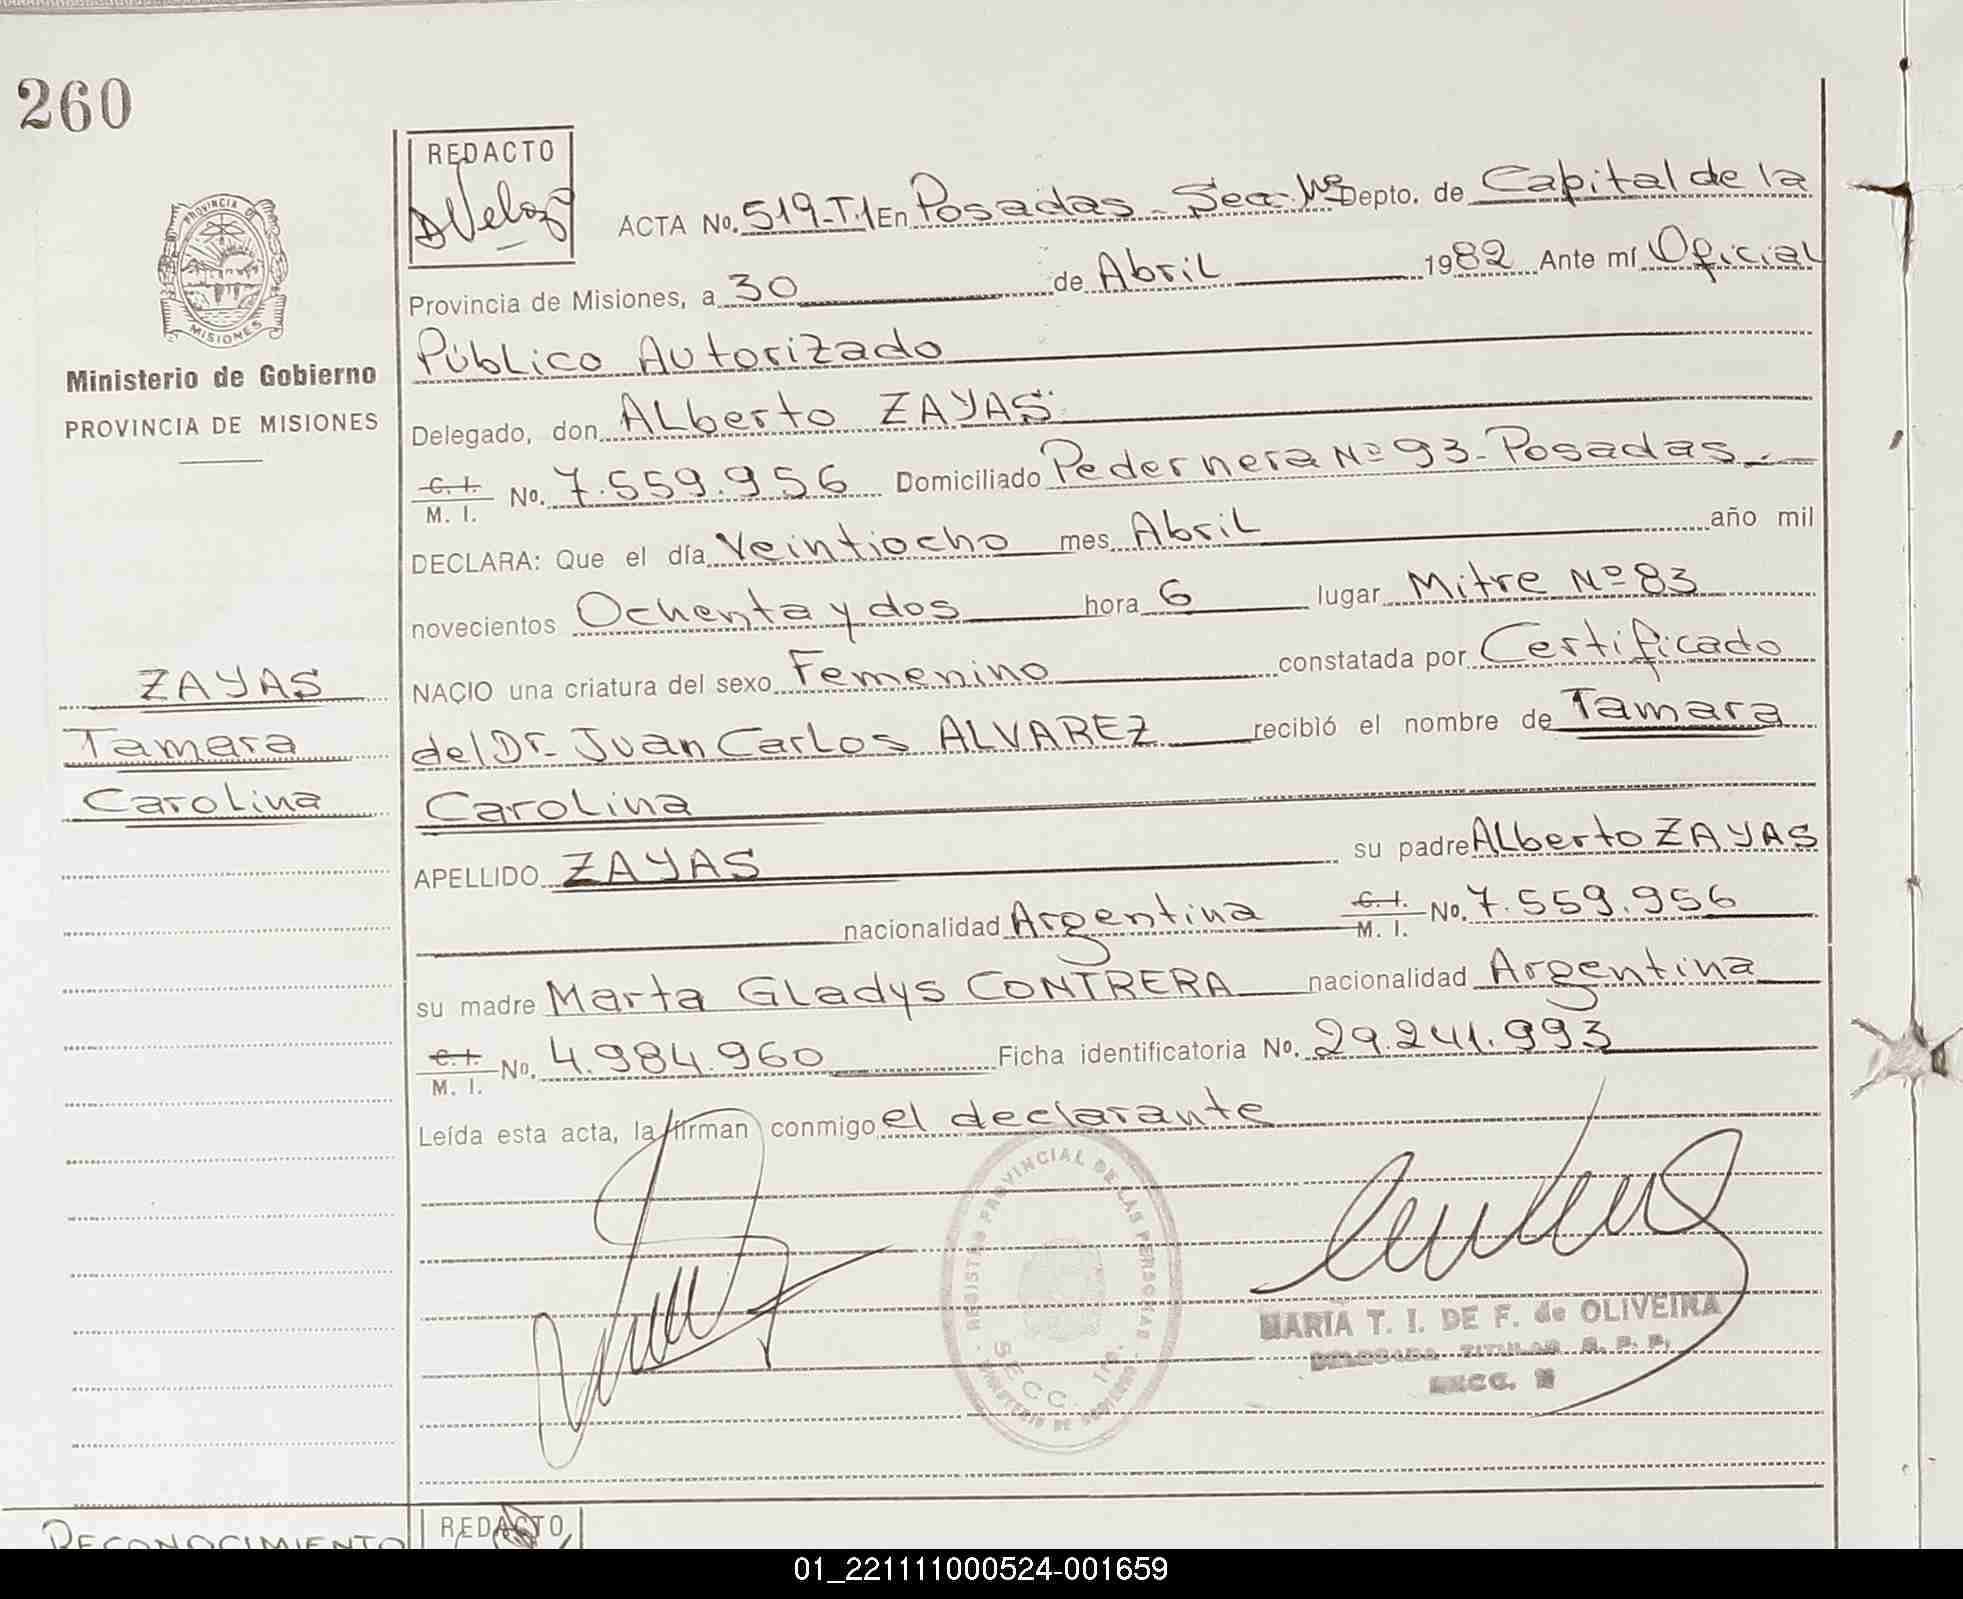 260
REDACTO
DVelozo
ACTA No. 519-T.1 En Posadas - Secc. 1ª Depto. de Capital de la
Provincia de Misiones, a 30 de Abril 1982 Ante mí Oficial
Público Autorizado
Delegado, don Alberto ZAYAS
C. I. M. I. No. 7.559.956 Domiciliado Pedernera Nº 93- Posadas
DECLARA: Que el día Veintiocho mes Abril año mil
novecientos Ochenta y dos hora 6 lugar Mitre Nº 83
NACIO una criatura del sexo Femenino constatada por Certificado
del Dr. Juan Carlos ALVAREZ recibió el nombre de Tamara
Carolina
APELLIDO ZAYAS su padre Alberto ZAYAS
nacionalidad Argentina C. I. M. I. No. 7.559.956
su madre Marta Gladys CONTRERA nacionalidad Argentina
C. I. M. I. No. 4.984.960 Ficha identificatoria No. 29.241.993
Leída esta acta, la firman conmigo el declarante
PROVINCIA DE
MISIONES
Ministerio de Gobierno
PROVINCIA DE MISIONES
ZAYAS
Tamara
Carolina
REGISTRO PROVINCIAL DE LAS PERSONAS
SECC. 1ra.
MINISTERIO DE GOBIERNO
MARIA T. I. DE F. de OLIVEIRA
DELEGADA TITULAR R. P. P.
SECC.
RECONOCIMIENTO
REDACTO
01_221111000524-001659